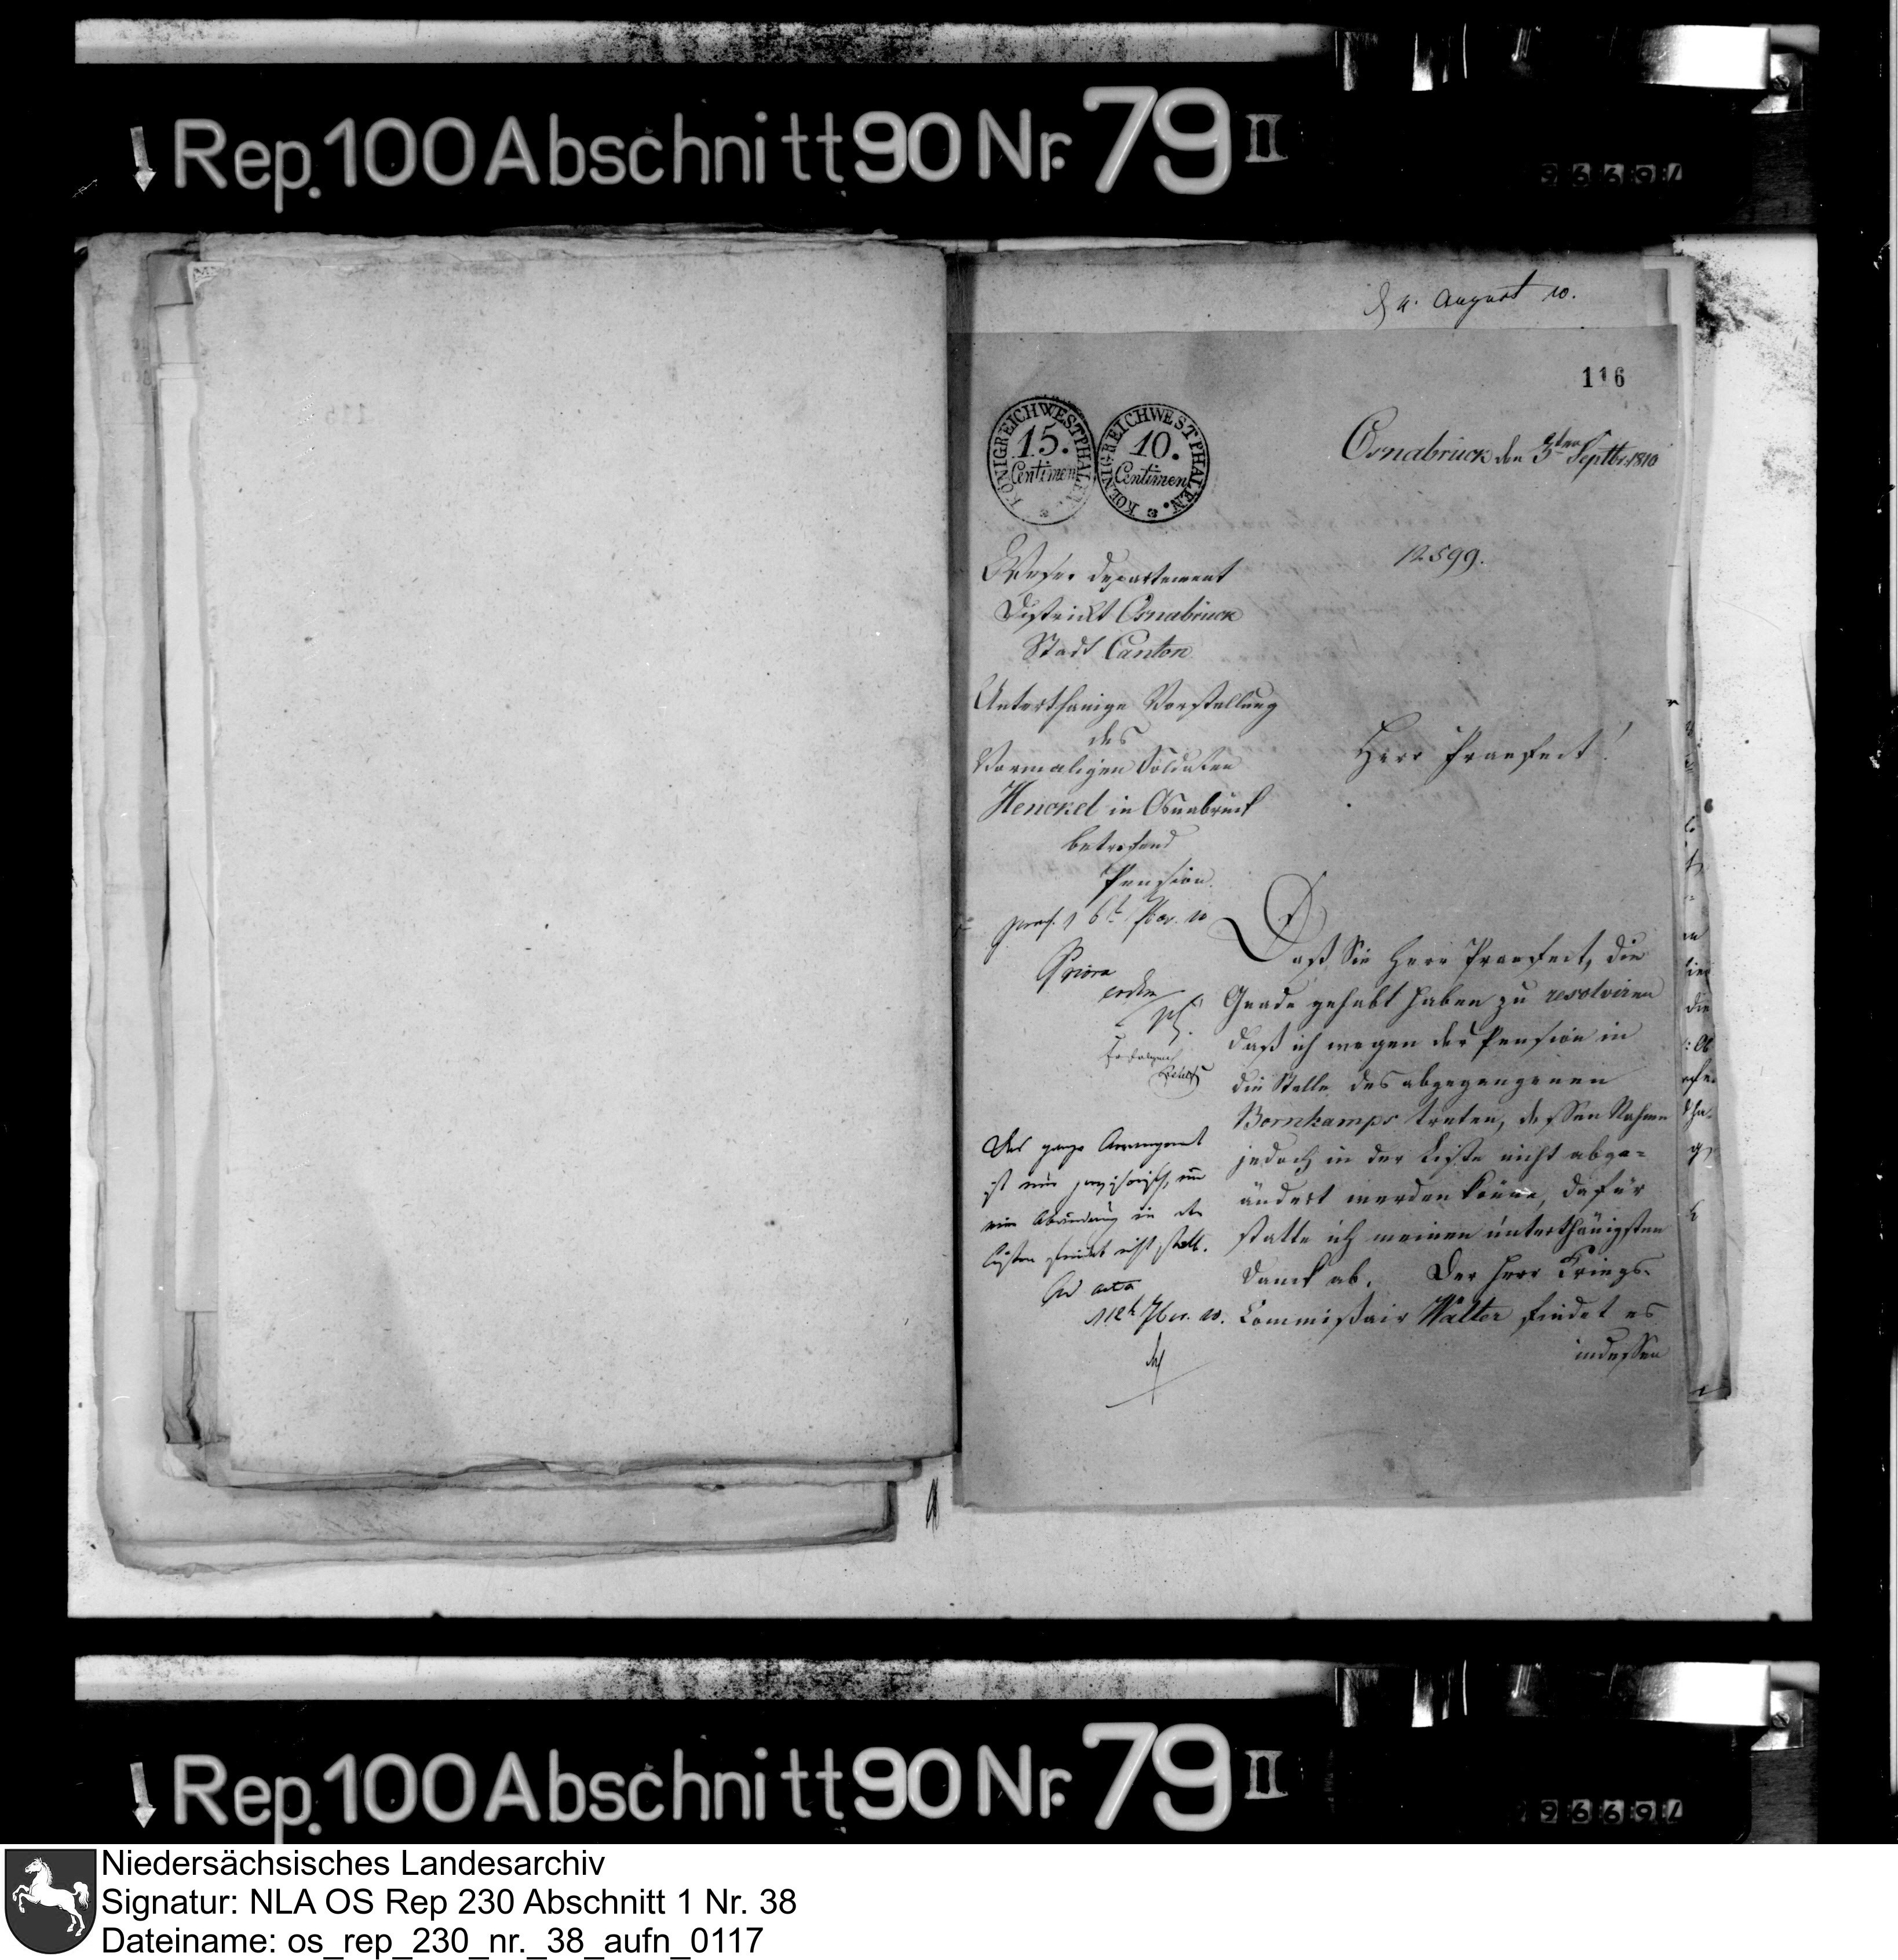 Rep. 100 Abschnitt 90 Nr. 79 II
96691
4. August 10.
116
KÖNIGREICH WESTPHALEN
15.
Centimen
KOENIGREICH WESTPHALEN.
10.
Centimen
Osnabrück den 5ten Septbr 1810
12599.
Weser departement
District Osnabrück
Stadt Canton
Unterthänige Vorstellung
des
Vormaligen Soldaten
Henckel in Osnabrück
betrefend
Pension.
Herr Praefect!
praes. 6t 7br. 10
Priora
Daß Sie Herr Praefect, die
Gnade gehabt haben zu resolviren
daß ich wegen der Pension in
die Stelle des abgegangenen
Bornkamps treten, dessen Nahme
jedoch in der Liste nicht abge-
ändert werden könne, dafür
statte ich meinen unterthänigsten
Danck ab. Der Herr Kriegs-
Commißair Walter findet es
indessen
Das ganze Arrangement
ist nur provisorisch, und
eine Abänderung in den
Listen findet nicht statt.
Ad acta
12t 7br. 10.
Rep. 100 Abschnitt 90 Nr. 79 II
96691
Niedersächsisches Landesarchiv
Signatur: NLA OS Rep 230 Abschnitt 1 Nr. 38
Dateiname: os_rep_230_nr._38_aufn_0117